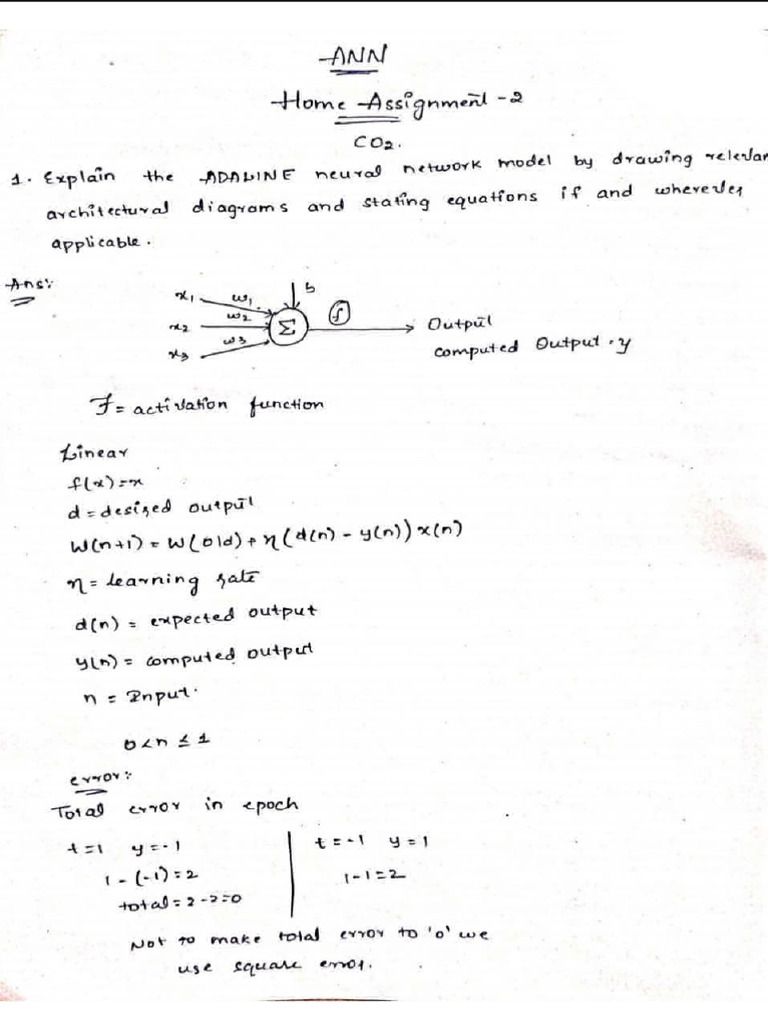 ANN
Home Assignment - 2
CO2.
1. Explain the ADALINE neural network model by drawing relevan
architectural diagrams and stating equations if and wherever
applicable.
Ans:
x1 w1 b
x2 w2 Σ f Output
x3 w3 computed Output . y
F = activation function
Linear
f(x)=x
d = desired output
W(n+1) = W(old) + η(d(n) - y(n)) x(n)
η = learning rate
d(n) = expected output
y(n) = computed output
n = Input.
0 < n ≤ 1
error:
Total error in epoch
t=1 y=-1 t=-1 y=1
1-(-1)=2 1-1=2
total = 2-2=0
Not to make total error to '0' we
use square error.